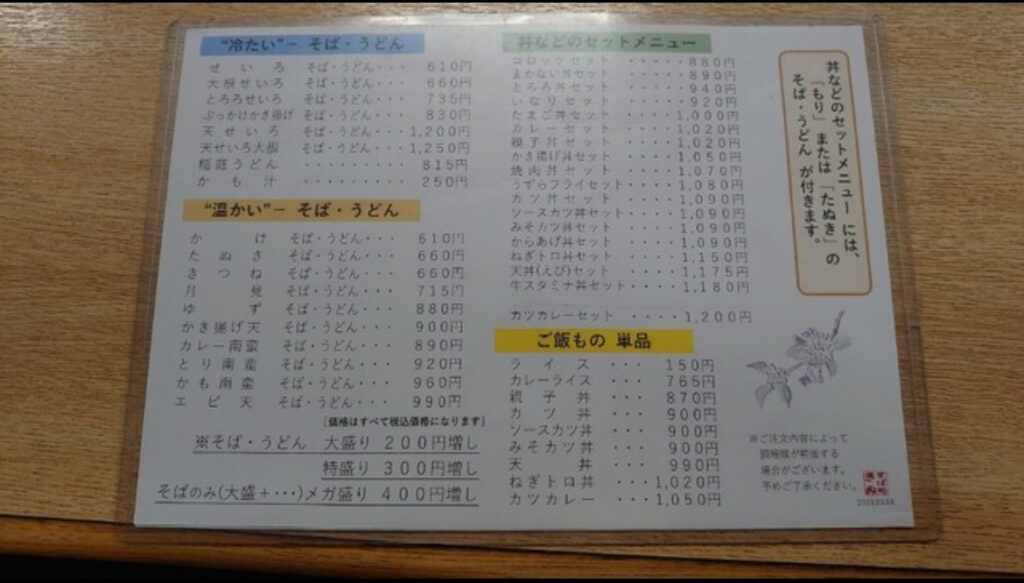 "冷たい"- そば・うどん
せいろ そば・うどん・・・ 610円
大根せいろ そば・うどん・・・ 660円
とろろせいろ そば・うどん・・・ 735円
ぶっかけかき揚げ そば・うどん・・・ 830円
天せいろ そば・うどん・・・1,200円
天せいろ大根 そば・うどん・・・1,250円
稲庭うどん ・・・・・・・・・ 815円
かも汁 ・・・・・・・・・ 250円
"温かい"- そば・うどん
かけ そば・うどん・・・ 610円
たぬき そば・うどん・・・ 660円
きつね そば・うどん・・・ 660円
月見 そば・うどん・・・ 715円
ゆず そば・うどん・・・ 880円
かき揚げ天 そば・うどん・・・ 900円
カレー南蛮 そば・うどん・・・ 890円
とり南蛮 そば・うどん・・・ 920円
かも南蛮 そば・うどん・・・ 960円
エビ天 そば・うどん・・・ 990円
[価格はすべて税込価格になります]
※そば・うどん 大盛り 200円増し
特盛り 300円増し
そばのみ(大盛+・・・)メガ盛り 400円増し
丼などのセットメニュー
コロッケセット ・・・・・ 880円
まかない丼セット ・・・・ 890円
とろろ丼セット ・・・・・ 940円
いなりセット ・・・・・ 920円
たまご丼セット ・・・・1,000円
カレーセット ・・・・・1,020円
親子丼セット ・・・・・1,020円
かき揚げ丼セット ・・・・1,050円
焼肉丼セット ・・・・・1,070円
うずらフライセット ・・・・1,080円
カツ丼セット ・・・・・1,090円
ソースカツ丼セット・・・・1,090円
みそカツ丼セット ・・・・1,090円
からあげ丼セット ・・・・1,090円
ねぎトロ丼セット ・・・・1,150円
天丼(えび)セット ・・・・1,175円
牛スタミナ丼セット・・・・1,180円
カツカレーセット ・・・・1,200円
ご飯もの 単品
ライス ・・・ 150円
カレーライス ・・・ 765円
親子丼 ・・・ 870円
カツ丼 ・・・ 900円
ソースカツ丼 ・・・ 900円
みそカツ丼 ・・・ 900円
天丼 ・・・ 990円
ねぎトロ丼 ・・・1,020円
カツカレー ・・・1,050円
丼などのセットメニュー には、
「もり」 または 「たぬき」の
そば・うどん が付きます。
※ご注文内容によって
調理順が前後する
場合がございます。
予めご了承ください。